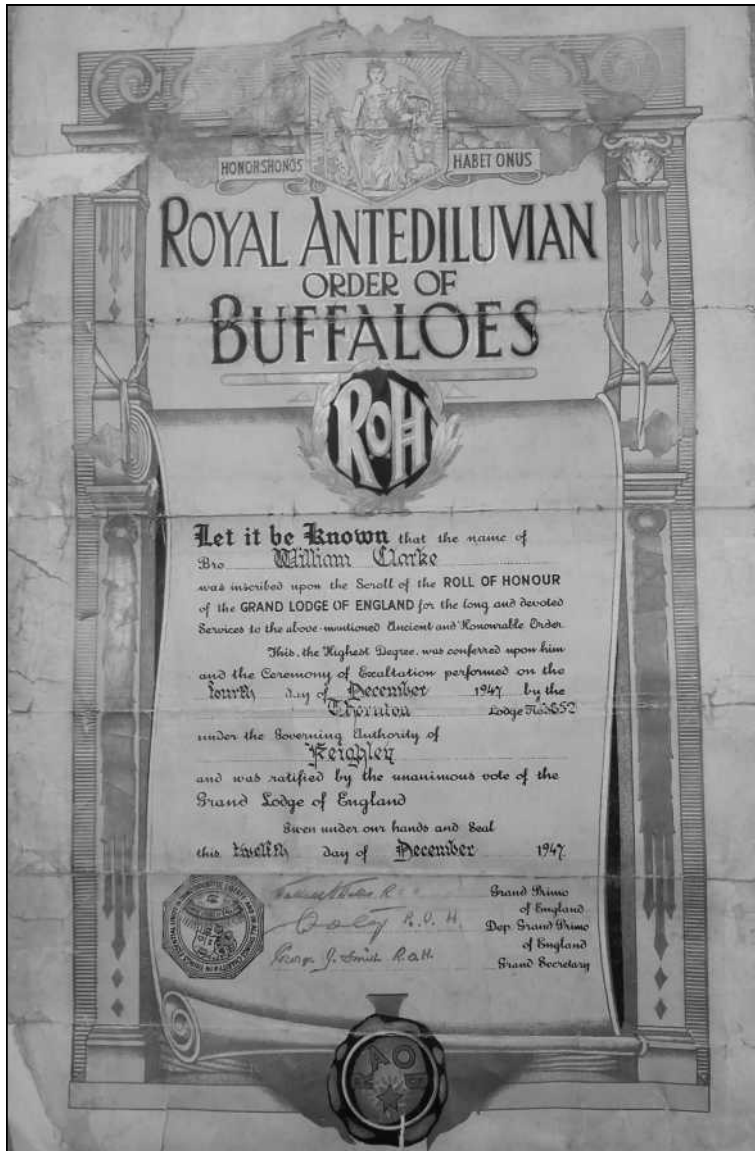 HONORSHONOS HABET ONUS
ROYAL ANTEDILUVIAN
ORDER OF
BUFFALOES
RoH
Let it be Known that the name of
Bro William Clarke
was inscribed upon the Scroll of the ROLL OF HONOUR
of the GRAND LODGE OF ENGLAND for the long and devoted
Services to the above-mentioned Ancient and Honourable Order.
This, the Highest Degree, was conferred upon him
and the Ceremony of Exaltation performed on the
fourth day of December 1947 by the
Thornton Lodge No
under the Governing Authority of
Keighley
and was ratified by the unanimous vote of the
Grand Lodge of England
Given under our hands and Seal
this twelfth day of December 1947.
Grand Primo
of England
R.O.H. Dep. Grand Primo
of England
George J. Smith R.O.H. Grand Secretary
AO